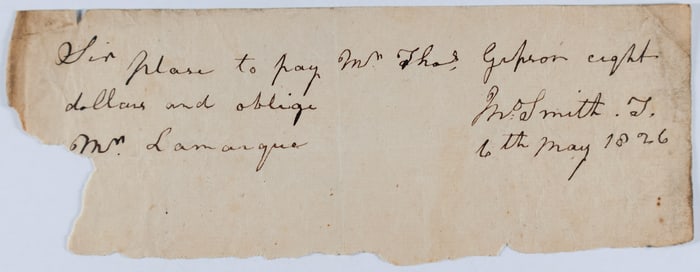 Sir plase to pay Mr Thos. Gipson eight
dollars and oblige Mr. Smith. T.
Mr. Lamarque 6th may 1826